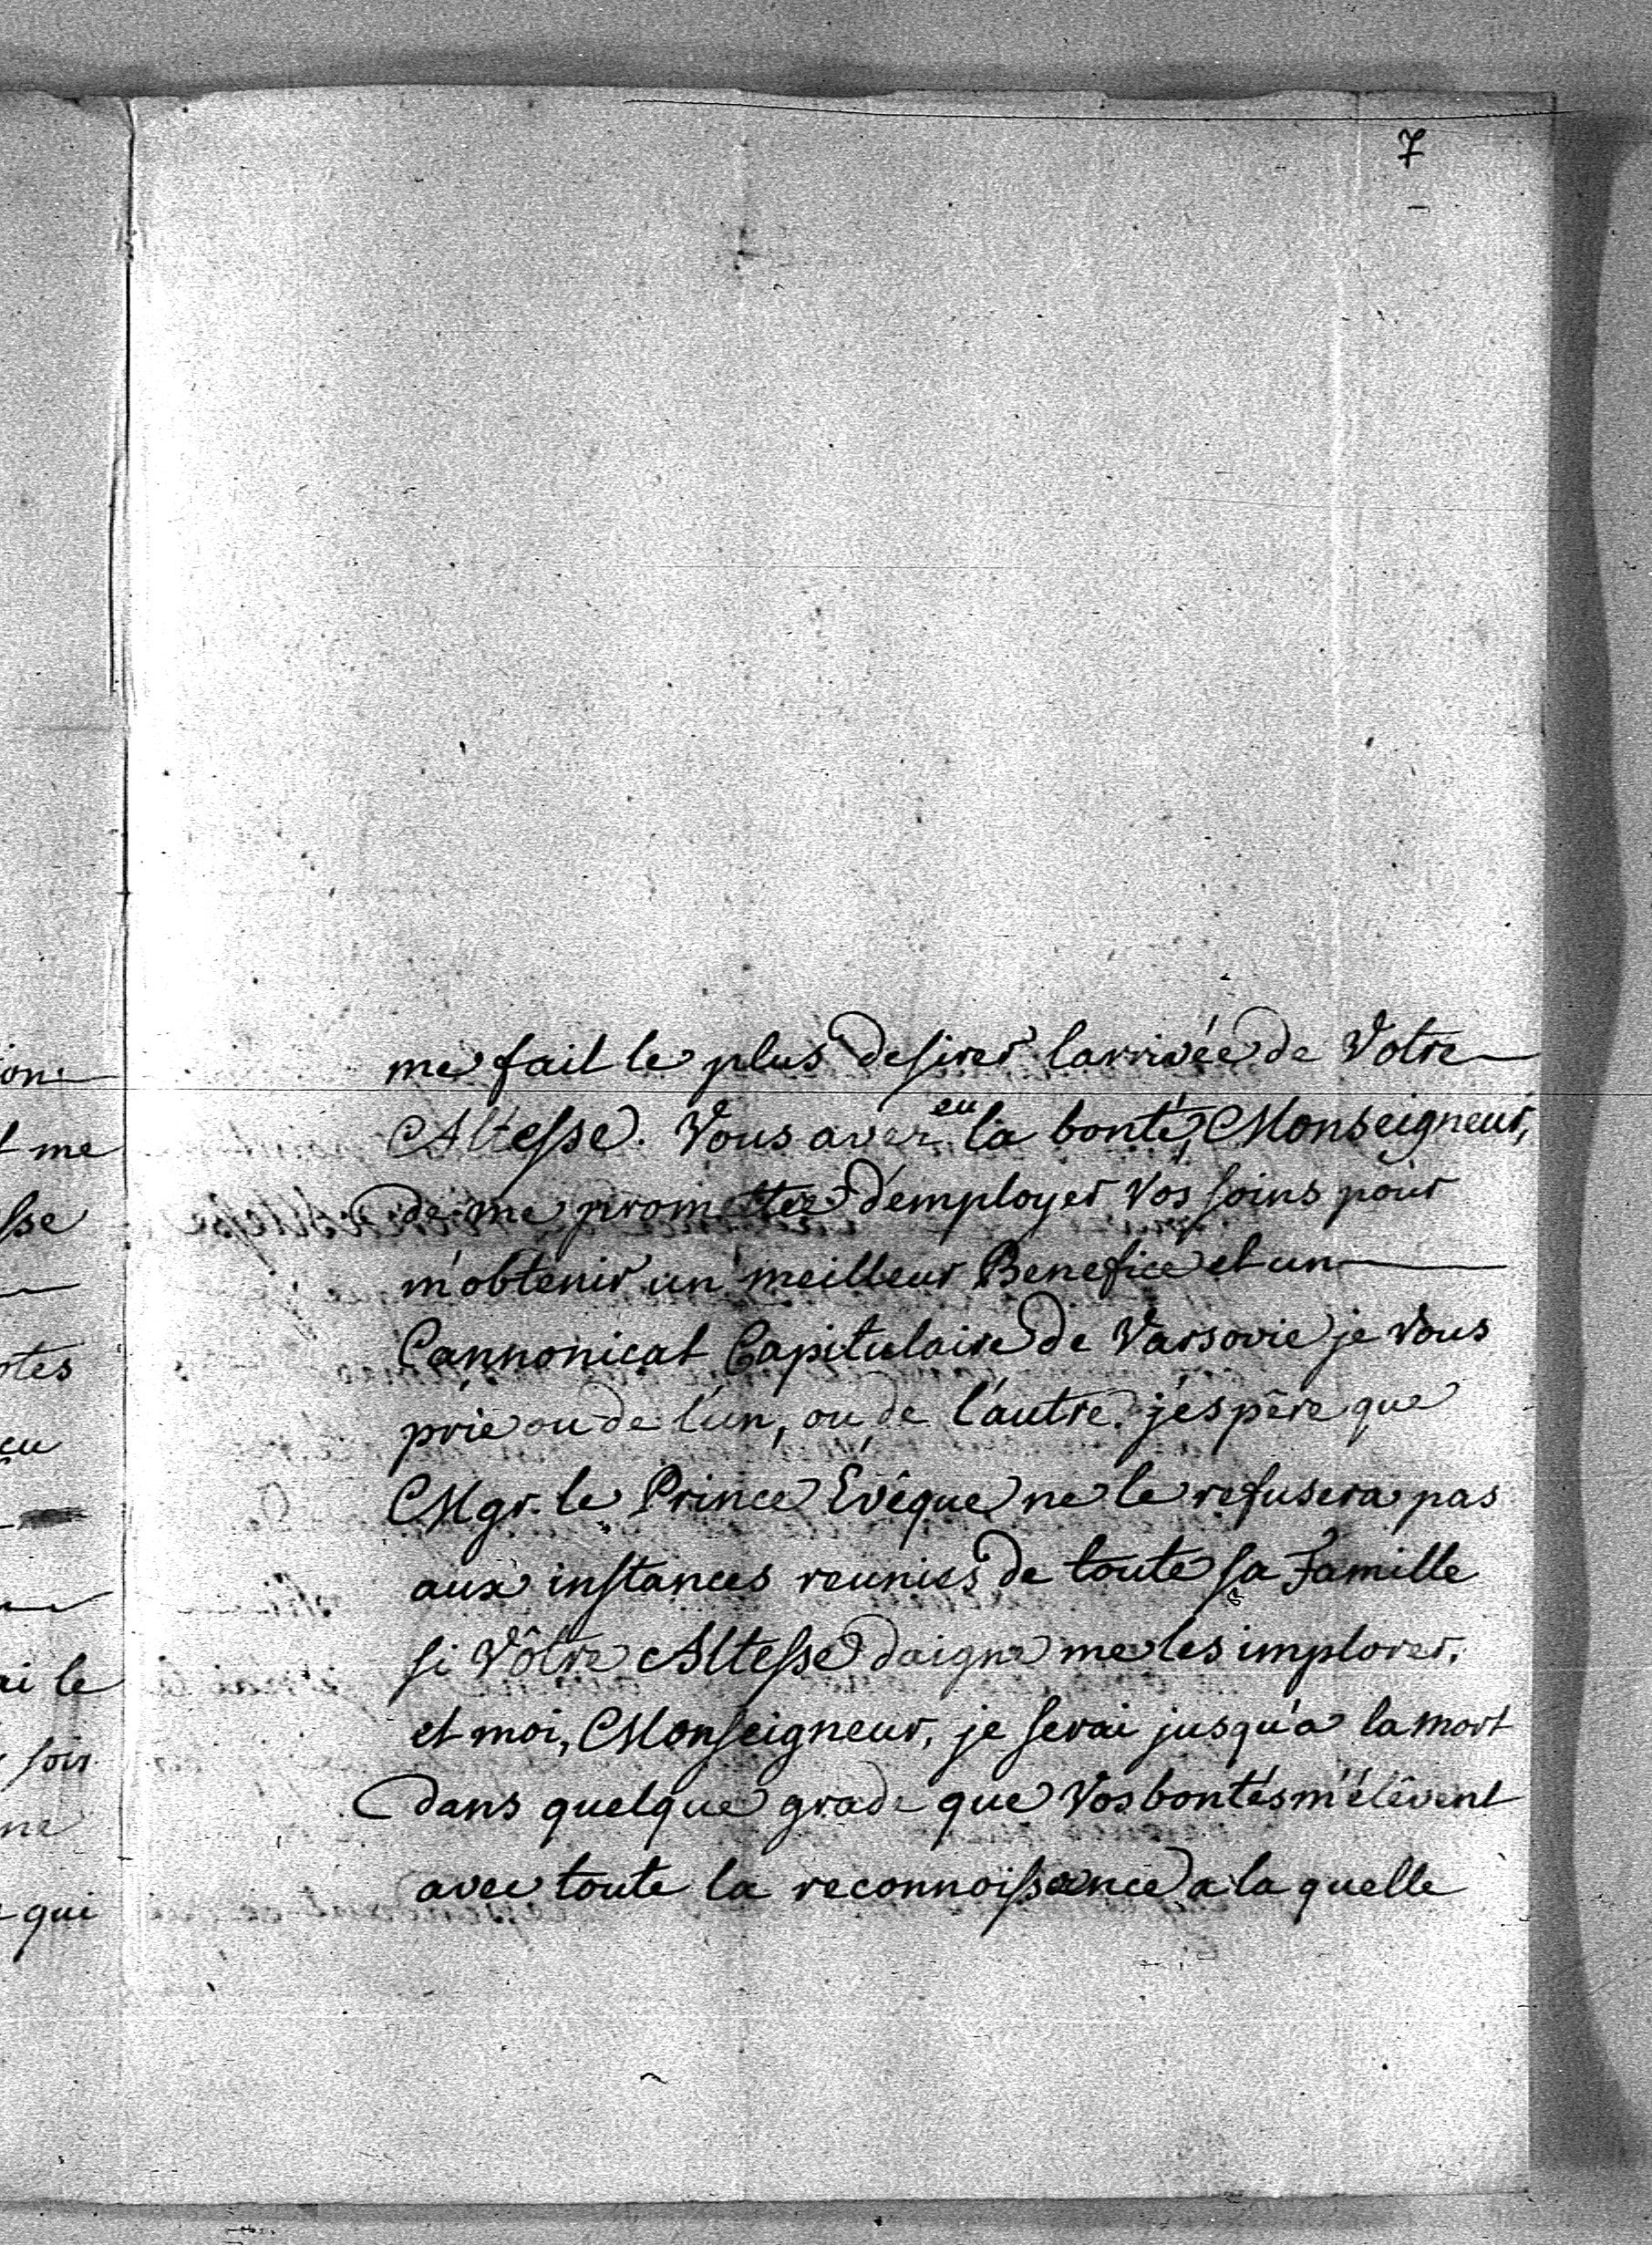 7
me fait le plus desirer larrivée de Votre
Altesse. Vous avez eu la bonté, Monseigneur,
de me promettre d'employer vos soins pour
m'obtenir un meilleur Benefice et un
Cannonicat Capitulaire de Varsovie je vous
prie ou de l'un, ou de l'autre. j'espêre que
Mgr. le Prince Evêque ne le refusera pas
aux instances reunies de toute sa Famille
si Vôtre Altesse daigne me les implorer,
et moi, Monseigneur, je serai jusqu'a la mort
dans quelque grade que Vos bontés m'élêvent
avec toute la reconnoissance a la quelle